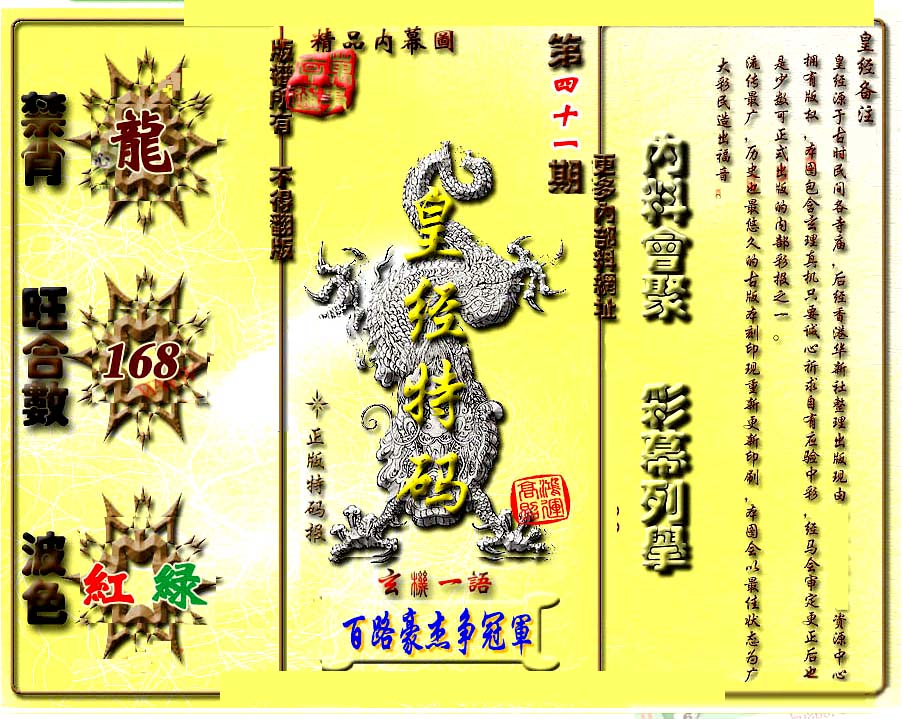 皇经备注
皇经源于古时民间各寺庙，后经香港华新社整理出版现由 资源中心
拥有版权，本图包含玄理真机只要诚心祈求自有应验中彩，经马会审定更正后也
是少数可正式出版的内部彩报之一。
流传最广，历史也最悠久的古版本刻印现重新更新印刷，本图会以最佳状态为广
大彩民造出福音
内料會聚
彩幕列舉
更多內部料網址
第四十一期
精品内幕圖
皇经特码
正版特码报
鴻運
高照
玄機一語
百路豪杰争冠軍
版權所有 不得翻版
禁肖
龍
旺合數
168
波色
紅 綠